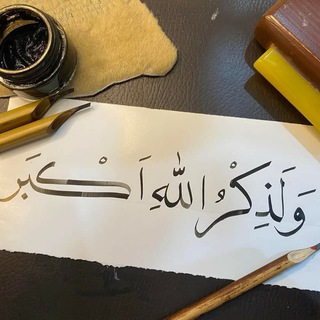 وَلَذِكْرُ اللّٰهِ اَكْبَر